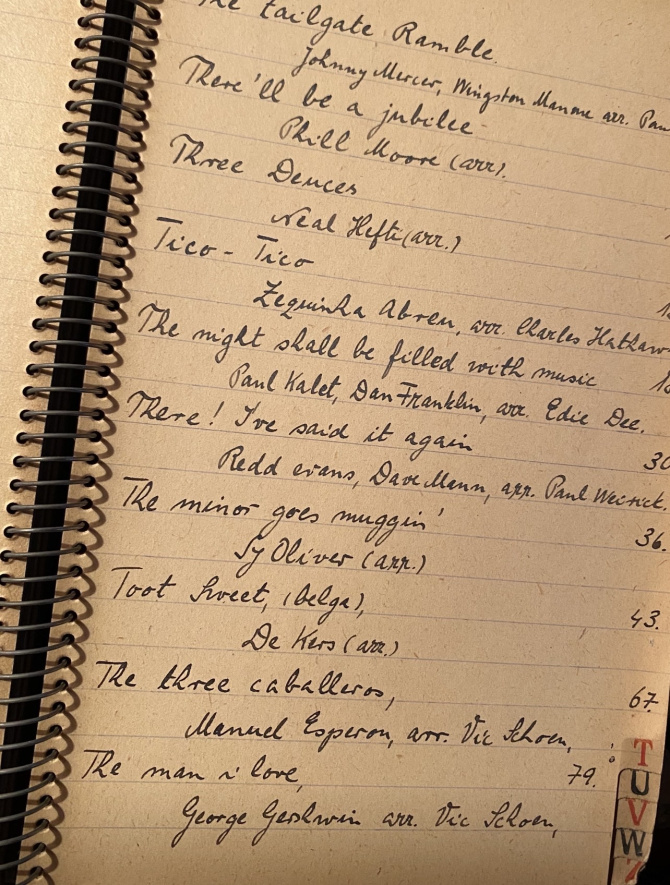 The tailgate Ramble.
Johnny Mercer, Wingston Manone arr. Pau
There'll be a jubilee
Phill Moore (arr).
Three Deuces
Neal Hefti (arr.)
Tico - Tico
Zequinha Abreu, arr. Charles Hathaw
The night shall be filled with music
Paul Kalet, Dan Franklin, arr. Edie Dee.
There! I've said it again 30
Redd evans, Dave Mann, arr. Paul Weirick.
The minor goes muggin' 36.
Sy Oliver (arr.)
Toot Sweet, (belga), 43.
De Kers (arr.)
The three caballeros, 67.
Manuel Esperon, arr. Vic Schoen,
The man i love, 79.
George Gershwin arr. Vic Schoen,
T
U
V
W